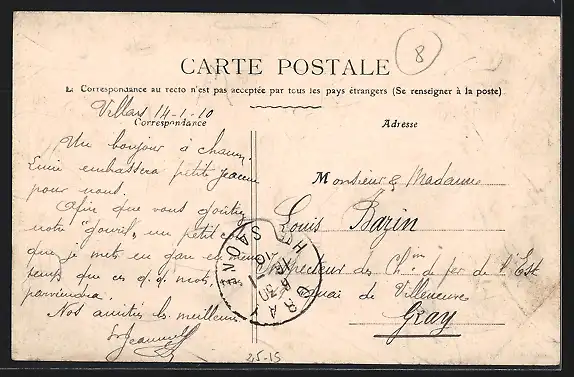 8
CARTE POSTALE
La Correspondance au recto n'est pas acceptée par tous les pays étrangers (Se renseigner à la poste)
Villars 14-1-10
Correspondance
Adresse
Un bonjour à chacun.
embrassera petite Jeanne
pour nous.
Afin que vous goûtiez
notre "gourit", un petit colis
que je mets en gare en même
temps que ces q.q. mots,
parviendra.
Nos amitiés les meilleures.
Jeanne
Monsieur & Madame
Louis Bazin
Inspecteur des Ch^ins de fer de l'Est
Quai de Villeneuve
Gray
GRAY
HTE SAONE
8 30
25-15